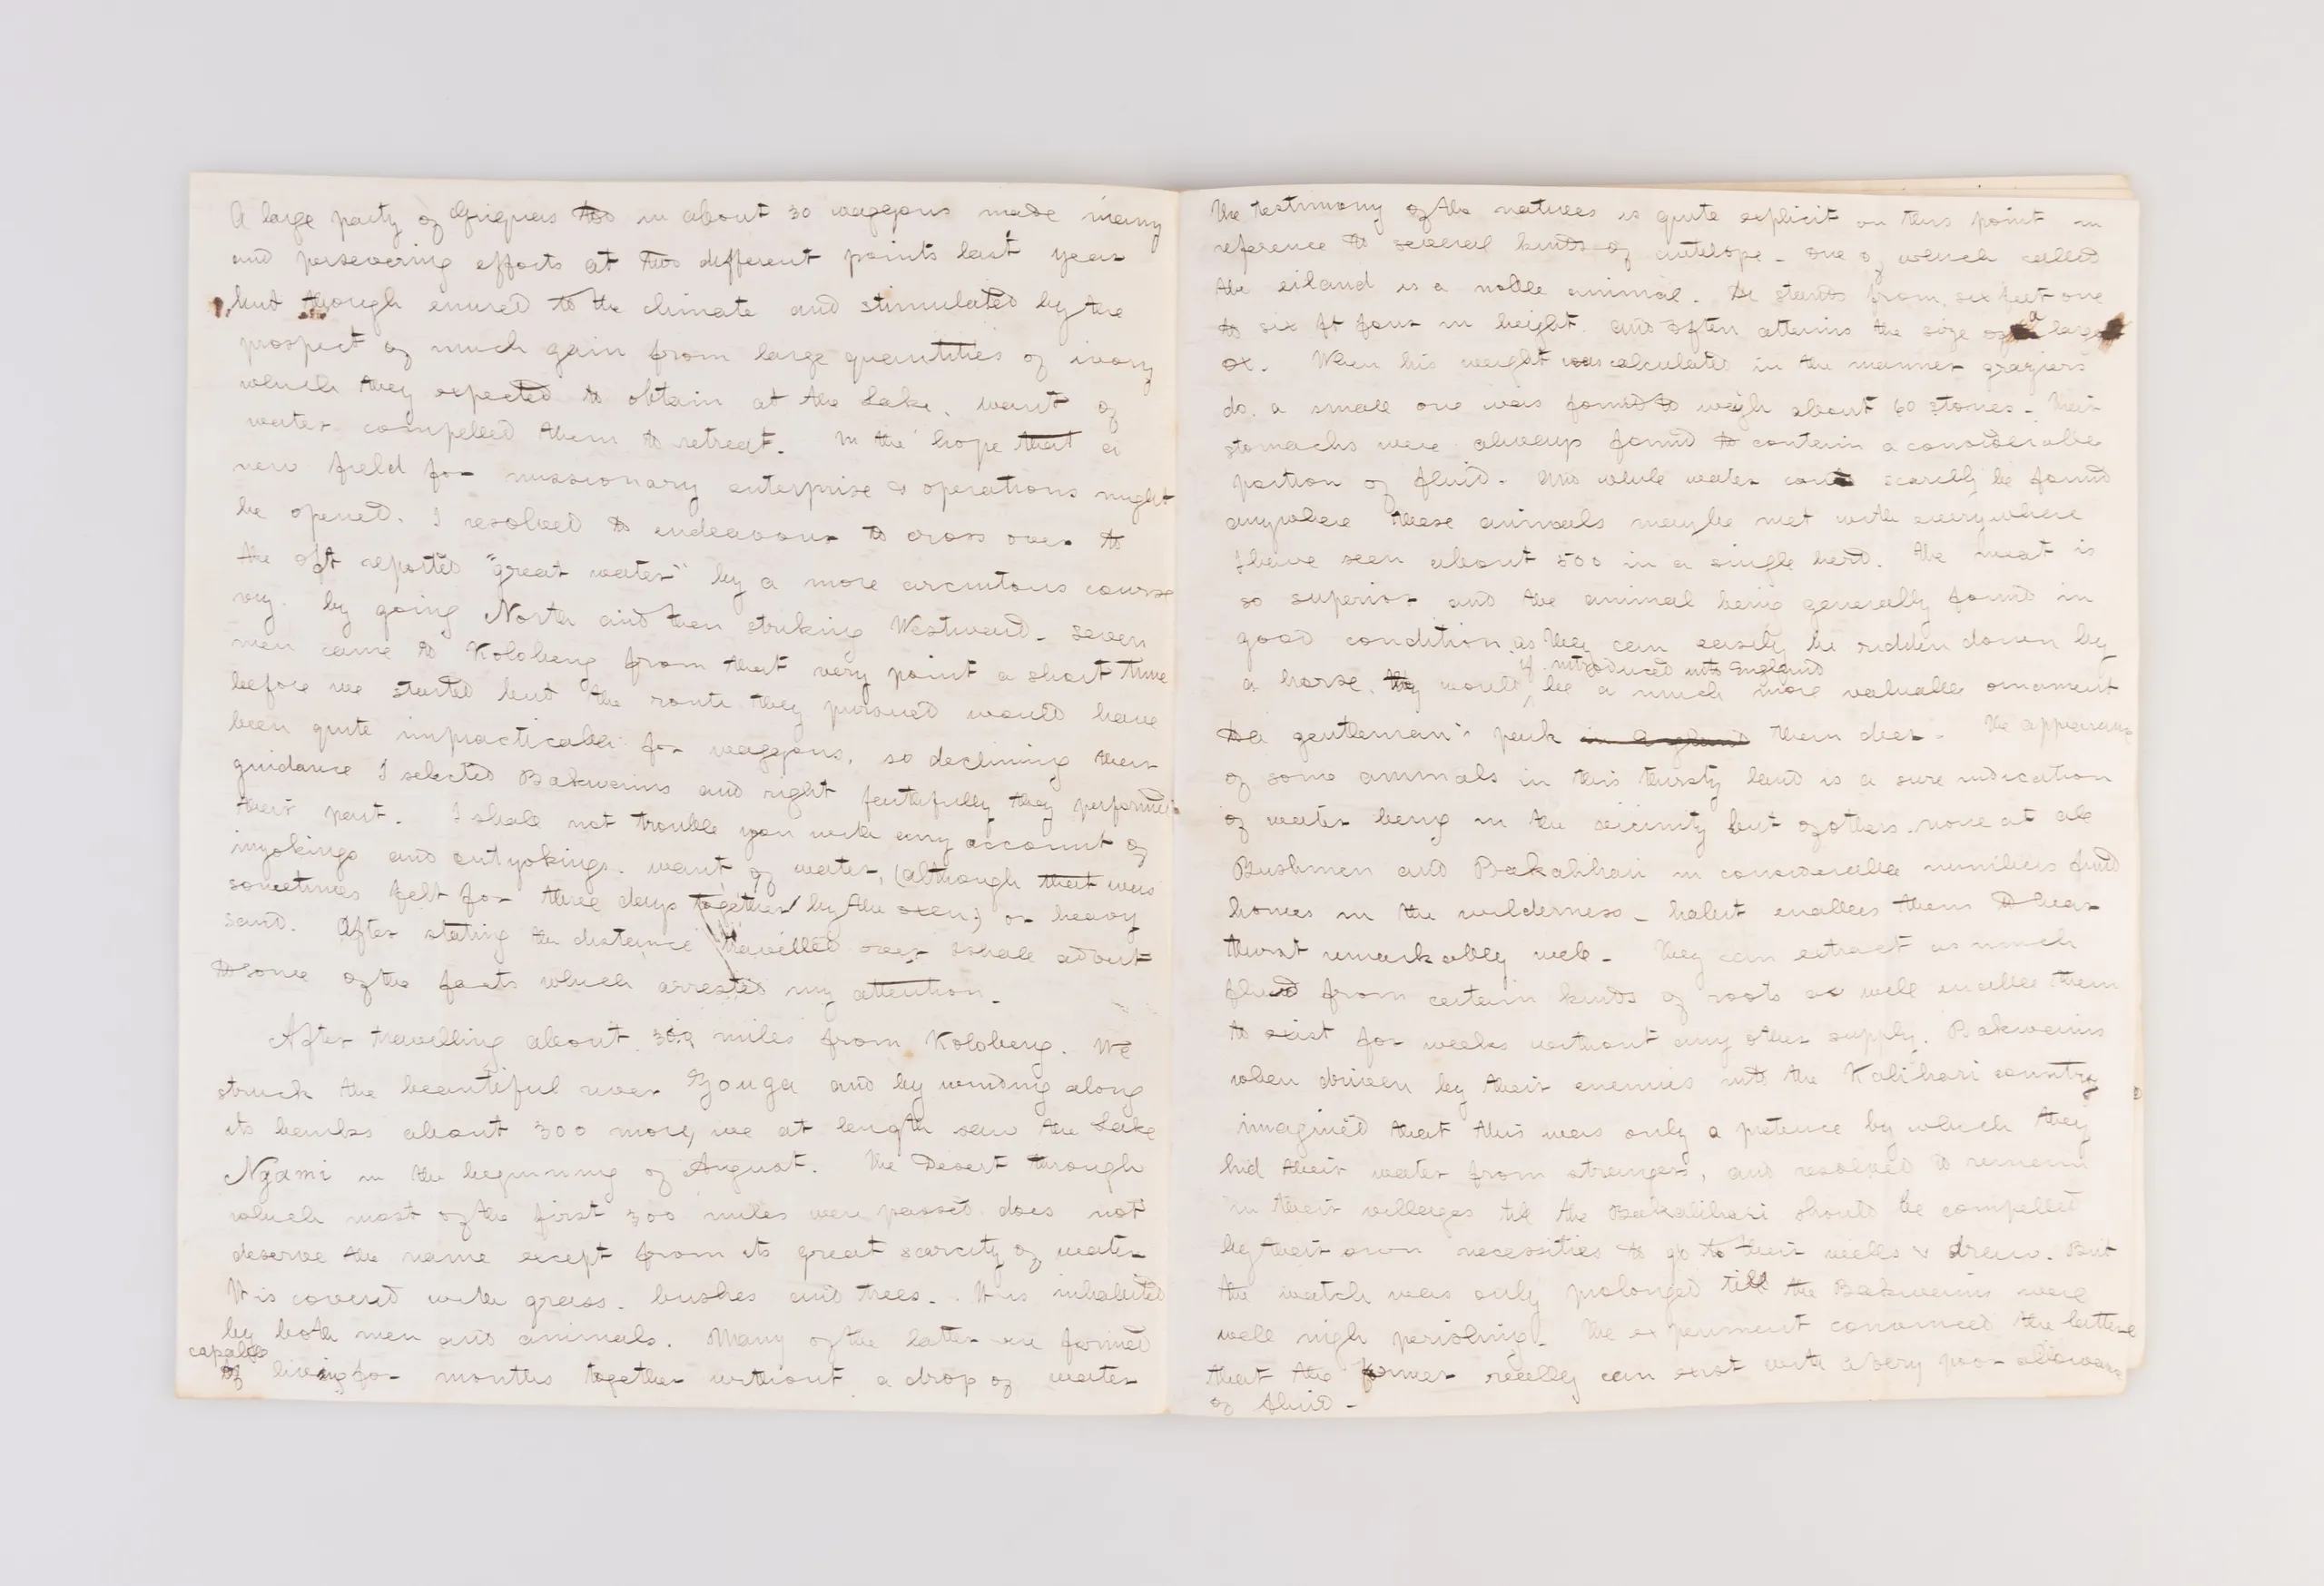 A large party of Griquas in about 30 waggons made many
and persevering efforts at two different points last year
but though enured to the climate and stimulated by the
prospect of much gain from large quantities of ivory
which they expected to obtain at the Lake, want of
water compelled them to retreat. In the hope that a
new field for missionary enterprise & operations might
be opened. I resolved to endeavour to cross over to
the oft reported "great water" by a more circuitous course
viz. by going North and then striking Westward - seven
men came to Kolobeng from that very point a short time
before we started but the route they pursued would have
been quite impracticable for waggons, so declining their
guidance I selected Bakwains and right faithfully they performed
their part. I shall not trouble you with any account of
inyokings and outyokings. want of water, (although that was
sometimes felt for three days together by the oxen;) or heavy
sand. After stating the distance travelled over I shall advert
to some of the facts which arrested my attention.
After travelling about 300 miles from Kolobeng. We
struck the beautiful river Zouga and by winding along
its banks about 300 more, we at length saw the Lake
Ngami in the beginning of August. The Desert through
which most of the first 300 miles were passed does not
deserve the name except from its great scarcity of water
It is covered with grass. bushes and trees. It is inhabited
by both men and animals. Many of the latter are found
capable
of living for months together without a drop of water
The testimony of the natives is quite explicit on this point in
reference to several kinds of antelope - one of which called
the eiland is a noble animal. He stands from six feet one
to six ft four in height. and often attains the size of a large
ox. When his weight was calculated in the manner graziers
do. a small one was found to weigh about 60 stones - Their
stomachs were always found to contain a considerable
portion of fluid. And while water could scarcely be found
anywhere these animals may be met with everywhere
I have seen about 500 in a single herd. The meat is
so superior and the animal being generally found in
good condition as they can easily be ridden down by
if introduced into England
a horse. they would be a much more valuable ornament
to a gentleman's park in England than deer. The appearance
of some animals in this thirsty land is a sure indication
of water being in the vicinity but of others. none at all
Bushmen and Bakalihari in considerable numbers find
homes in the wilderness - habit enables them to bear
thirst remarkably well - They can extract as much
fluid from certain kinds of roots as will enable them
to exist for weeks without any other supply. Bakwains
when driven by their enemies into the Kalihari country
imagined that this was only a pretence by which they
hid their water from strangers, and resolved to remain
in their villages till the Bakalihari should be compelled
by their own necessities to go to their wells & draw. But
the watch was only prolonged till the Bakwains were
well nigh perishing. The experiment convinced the latter
that the former really can exist with a very poor allowance
of fluid -